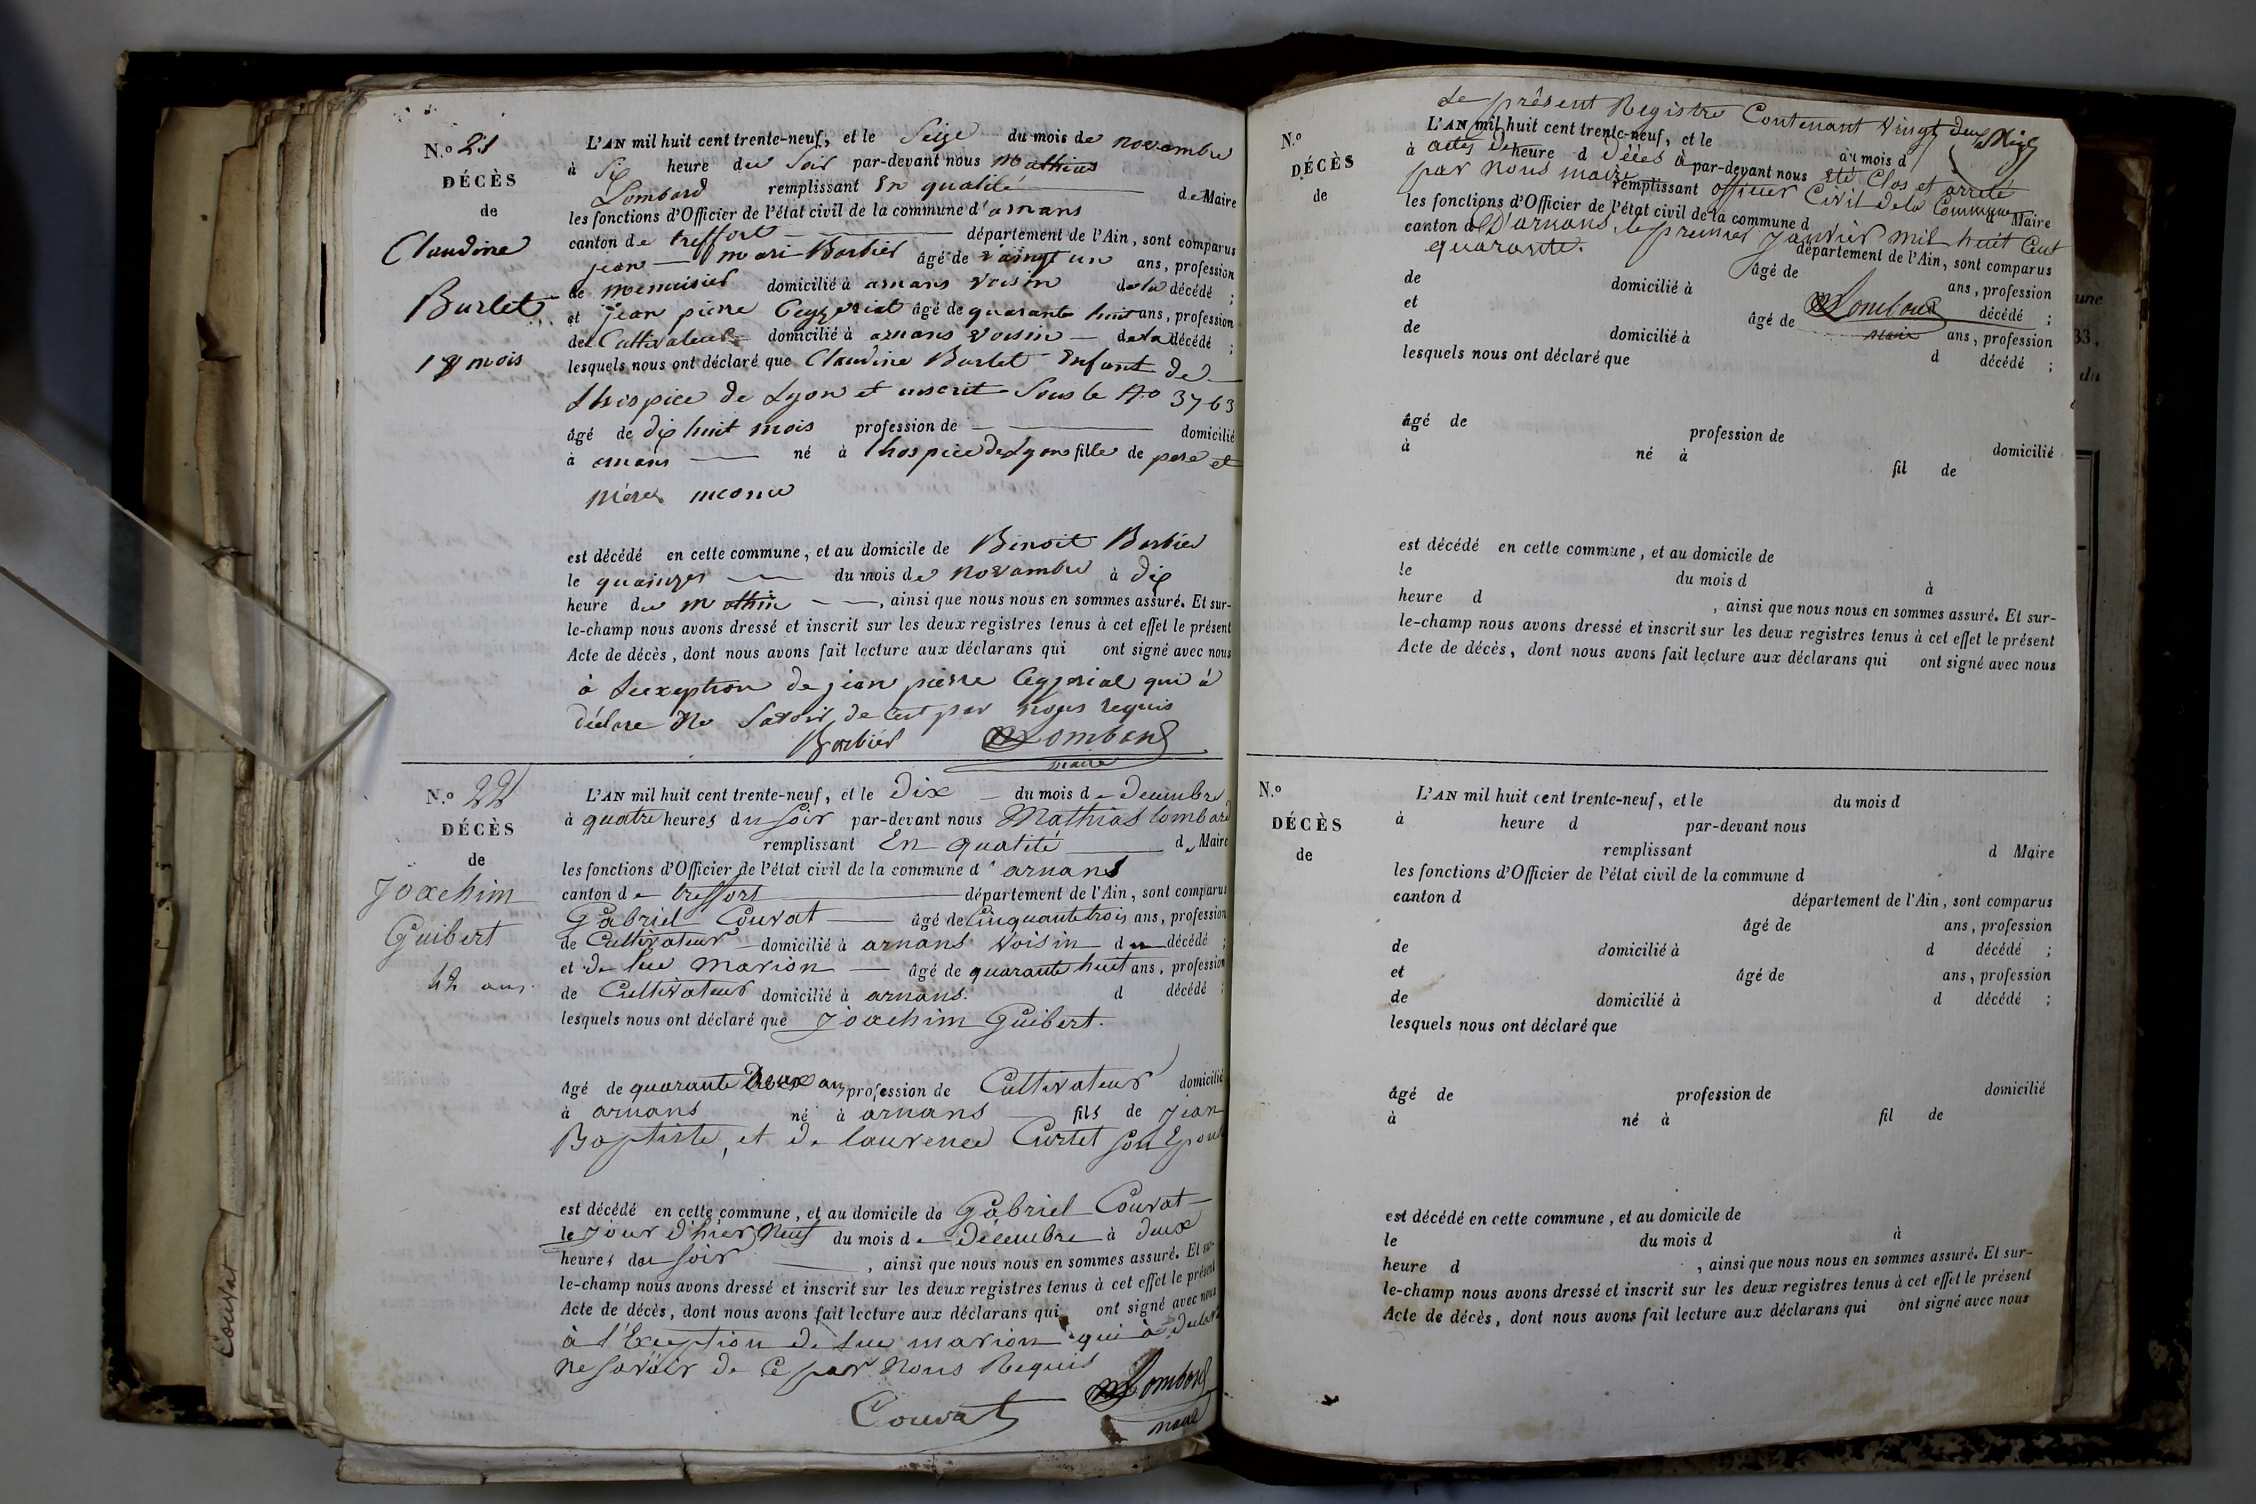 N.º 21
DÉCÈS
de
Claudine
Burlet
18 mois
L'AN mil huit cent trente-neuf, et le Seize du mois de novembre
à Six heure du Soir par-devant nous Mathias
Lombard remplissant En qualité de Maire
les fonctions d'Officier de l'état civil de la commune d'arnans
canton de treffort département de l'Ain, sont comparus
jean mari Barbier âgé de vaingt un ans, profession
de menuisier domicilié à arnans voisin de la décédé ;
et jean pierre Ceyzeriat âgé de quarante huit ans, profession
de Cultivateur domicilié à arnans voisin de la décédé ;
lesquels nous ont déclaré que Claudine Burlet Enfant de
Lhospice de Lyon et inscrit Sous le No 3763
âgé de dix huit mois profession de domicilié
à arnans né à lhospice de Lyon fille de pere et
mères inconnu
est décédé en cette commune, et au domicile de Benoit Barbier
le quainzes du mois de novembre à dix
heure du mathin , ainsi que nous nous en sommes assuré. Et sur-
le-champ nous avons dressé et inscrit sur les deux registres tenus à cet effet le présent
Acte de décès, dont nous avons fait lecture aux déclarans qui ont signé avec nous
à Lexeption de jean pierre Ceyzeriat qui à
déclare ne Savoir de cest par nous requis
Barbier MLombard
maire
N.º 22
DÉCÈS
de
Joachim
Guibert
42 ans.
L'AN mil huit cent trente-neuf, et le Dix du mois de Decembre
à quatre heures du soir par-devant nous Mathias lombard
remplissant En qualité de Maire
les fonctions d'Officier de l'état civil de la commune d'arnans
canton de treffort département de l'Ain, sont comparus
Gabriel Couvat âgé de Cinquante trois ans, profession
de Cultivateur domicilié à arnans voisin du décédé ;
et de luc marion âgé de quarante huit ans, profession
de Cultivateur domicilié à arnans. d décédé ;
lesquels nous ont déclaré que Joachim Guibert.
âgé de quarante Deux ans profession de Cultivateur domicilié
à arnans né à arnans fils de Jean
Baptiste, et de laurence Curtet son Epouse
est décédé en cette commune, et au domicile de Gabriel Couvat
le Jour d'hier Neuf du mois de Décembre à deux
heures du soir , ainsi que nous nous en sommes assuré. Et sur-
le-champ nous avons dressé et inscrit sur les deux registres tenus à cet effet le présent
Acte de décès, dont nous avons fait lecture aux déclarans qui ont signé avec nous
à l'Exception de luc marion qui à déclaré
ne savoir de ce par Nous Requis
Couvat MLombard
maire
Couvat
Le présent Registre Contenant vingt deux
N.º
DÉCÈS
de
L'AN mil huit cent trente-neuf, et le du mois d
actes de Décès a été Clos et arrêté
à heure d par-devant nous
par nous maire officier Civil de la Commune
remplissant d Maire
les fonctions d'Officier de l'état civil de la commune d
D'arnans, le premier Janvier mil huit Cent
canton d département de l'Ain, sont comparus
quarante.
âgé de ans, profession
de domicilié à d décédé ;
MLombard
maire
et âgé de ans, profession
de domicilié à d décédé ;
lesquels nous ont déclaré que
âgé de profession de domicilié
à né à fil de
est décédé en cette commune, et au domicile de
le du mois d à
heure d , ainsi que nous nous en sommes assuré. Et sur-
le-champ nous avons dressé et inscrit sur les deux registres tenus à cet effet le présent
Acte de décès, dont nous avons fait lecture aux déclarans qui ont signé avec nous
N.º
DÉCÈS
de
L'AN mil huit cent trente-neuf, et le du mois d
à heure d par-devant nous
remplissant d Maire
les fonctions d'Officier de l'état civil de la commune d
canton d département de l'Ain, sont comparus
âgé de ans, profession
de domicilié à d décédé ;
et âgé de ans, profession
de domicilié à d décédé ;
lesquels nous ont déclaré que
âgé de profession de domicilié
à né à fil de
est décédé en cette commune, et au domicile de
le du mois d à
heure d , ainsi que nous nous en sommes assuré. Et sur-
le-champ nous avons dressé et inscrit sur les deux registres tenus à cet effet le présent
Acte de décès, dont nous avons fait lecture aux déclarans qui ont signé avec nous